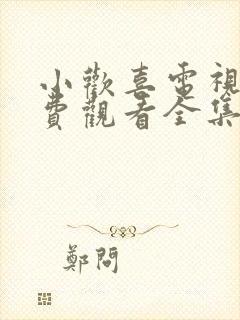 小歡喜電視
費觀看全集
鄭問